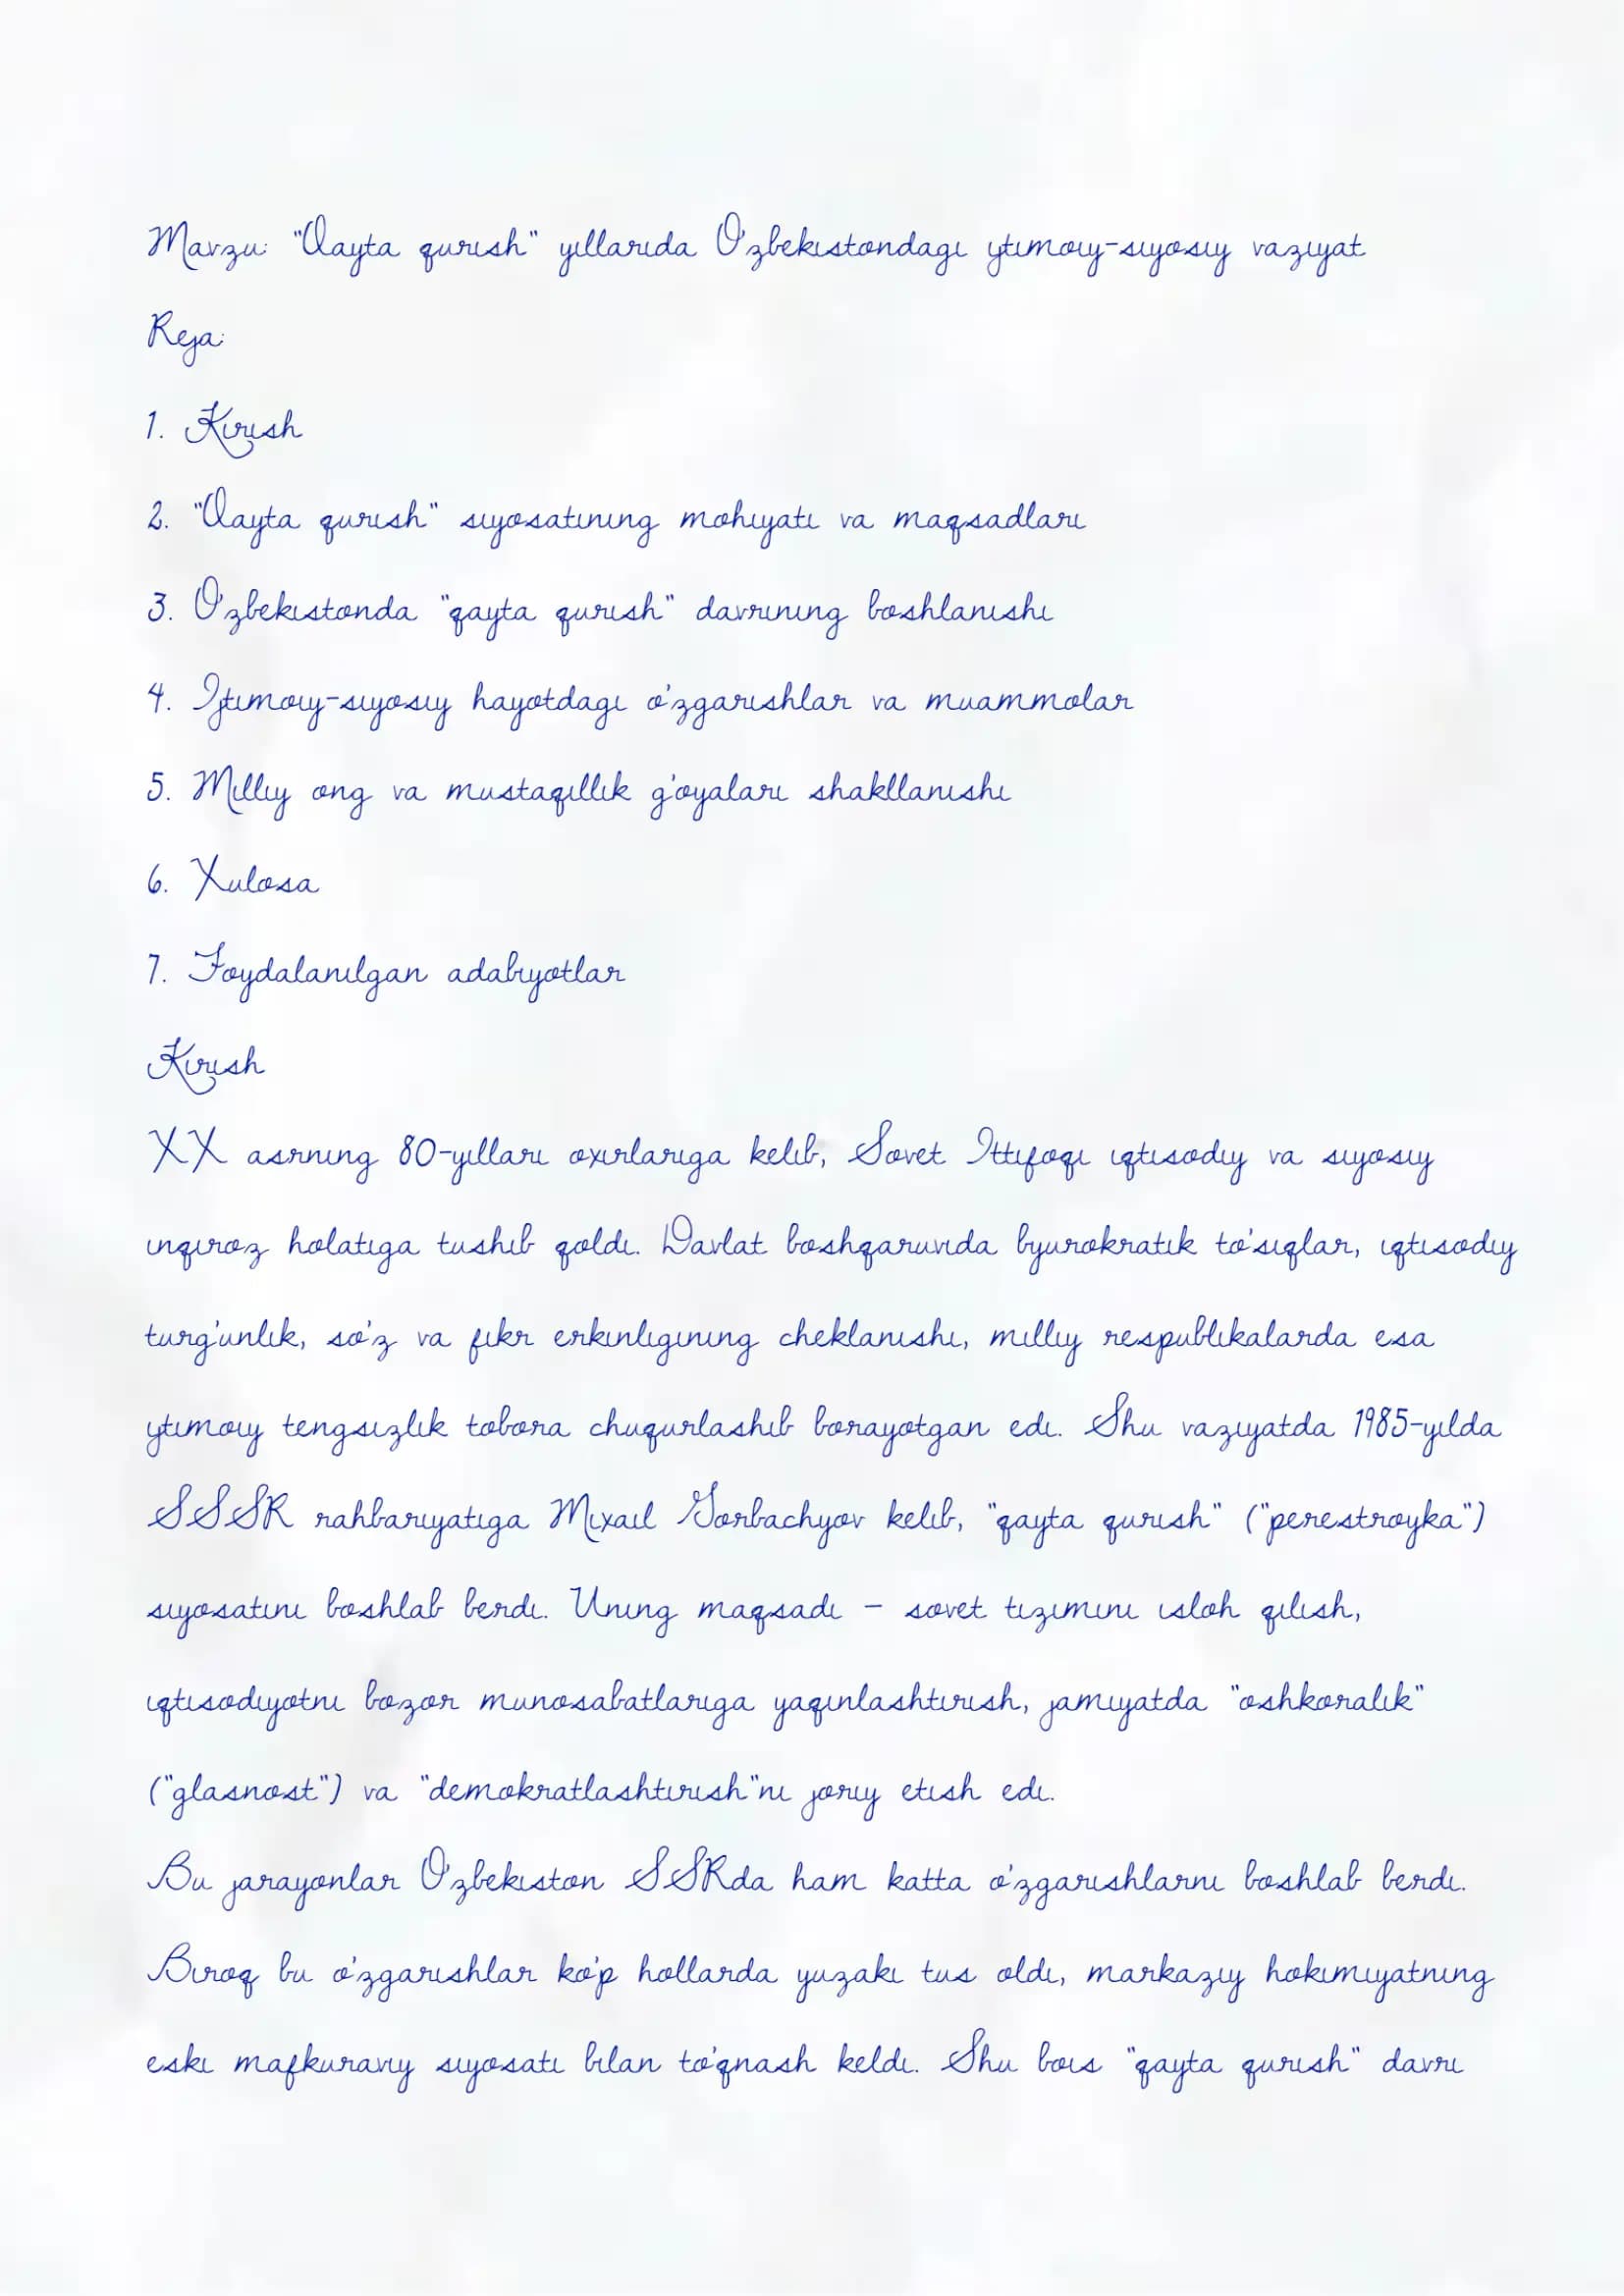 Mavzu: "Qayta qurish" yillarida O'zbekistondagi ijtimoiy-siyosiy vaziyat
Reja:
1. Kirish
2. "Qayta qurish" siyosatining mohiyati va maqsadlari
3. O'zbekistonda "qayta qurish" davrining boshlanishi
4. Ijtimoiy-siyosiy hayotdagi o'zgarishlar va muammolar
5. Milliy ong va mustaqillik g'oyalari shakllanishi
6. Xulosa
7. Foydalanilgan adabiyotlar
Kirish
XX asrning 80-yillari oxirlariga kelib, Sovet Ittifoqi iqtisodiy va siyosiy
inqiroz holatiga tushib qoldi. Davlat boshqaruvida byurokratik to'siqlar, iqtisodiy
turg'unlik, so'z va fikr erkinligining cheklanishi, milliy respublikalarda esa
ijtimoiy tengsizlik tobora chuqurlashib borayotgan edi. Shu vaziyatda 1985-yilda
SSSR rahbariyatiga Mixail Gorbachyov kelib, "qayta qurish" ("perestroyka")
siyosatini boshlab berdi. Uning maqsadi – sovet tizimini isloh qilish,
iqtisodiyotni bozor munosabatlariga yaqinlashtirish, jamiyatda "oshkoralik"
("glasnost") va "demokratlashtirish"ni joriy etish edi.
Bu jarayonlar O'zbekiston SSRda ham katta o'zgarishlarni boshlab berdi.
Biroq bu o'zgarishlar ko'p hollarda yuzaki tus oldi, markaziy hokimiyatning
eski mafkuraviy siyosati bilan to'qnash keldi. Shu bois "qayta qurish" davri